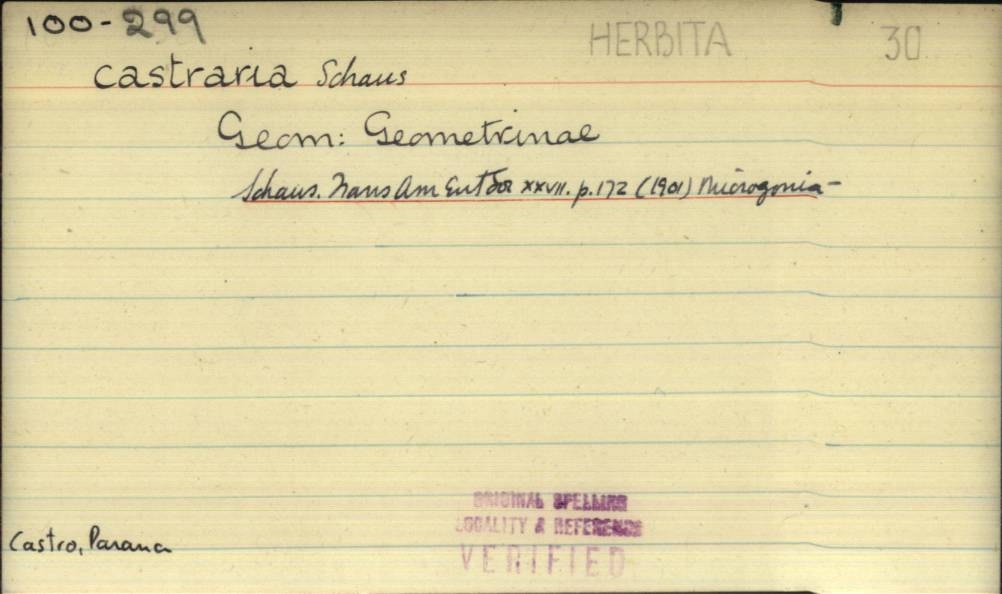 100-299
HERBITA 30
castraria Schaus
Geom: Geometrinae
Schaus. Trans Am Ent Soc xxvii. p.172 (1901) Microgonia-
ORIGINAL SPELLING
LOCALITY & REFERENCE
VERIFIED
Castro, Parana